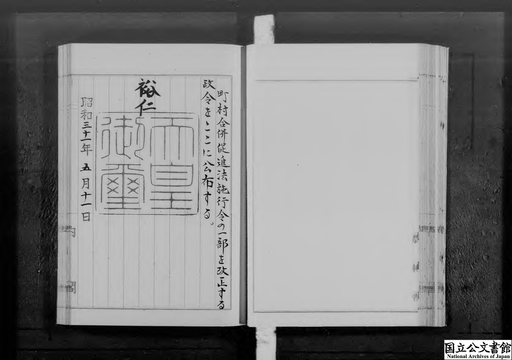 町村合併促進法施行令の一部を改正する
政令をここに公布する。
裕仁
天皇
御璽
昭和三十一年五月十一日
国立公文書館
National Archives of Japan